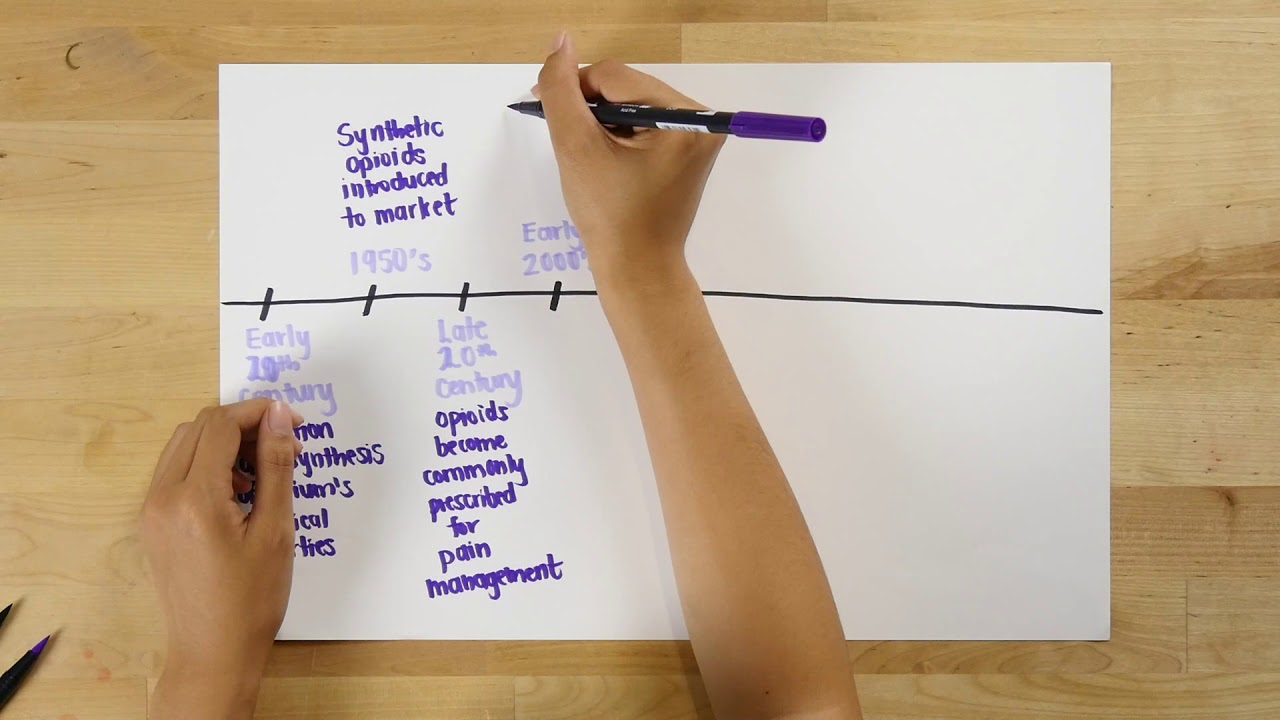 Synthetic
opioids
introduced
to market
1950's
Early
2000's
Early
20th
century
synthesis
Late
20th
century
opioids
become
commonly
prescribed
for
pain
management